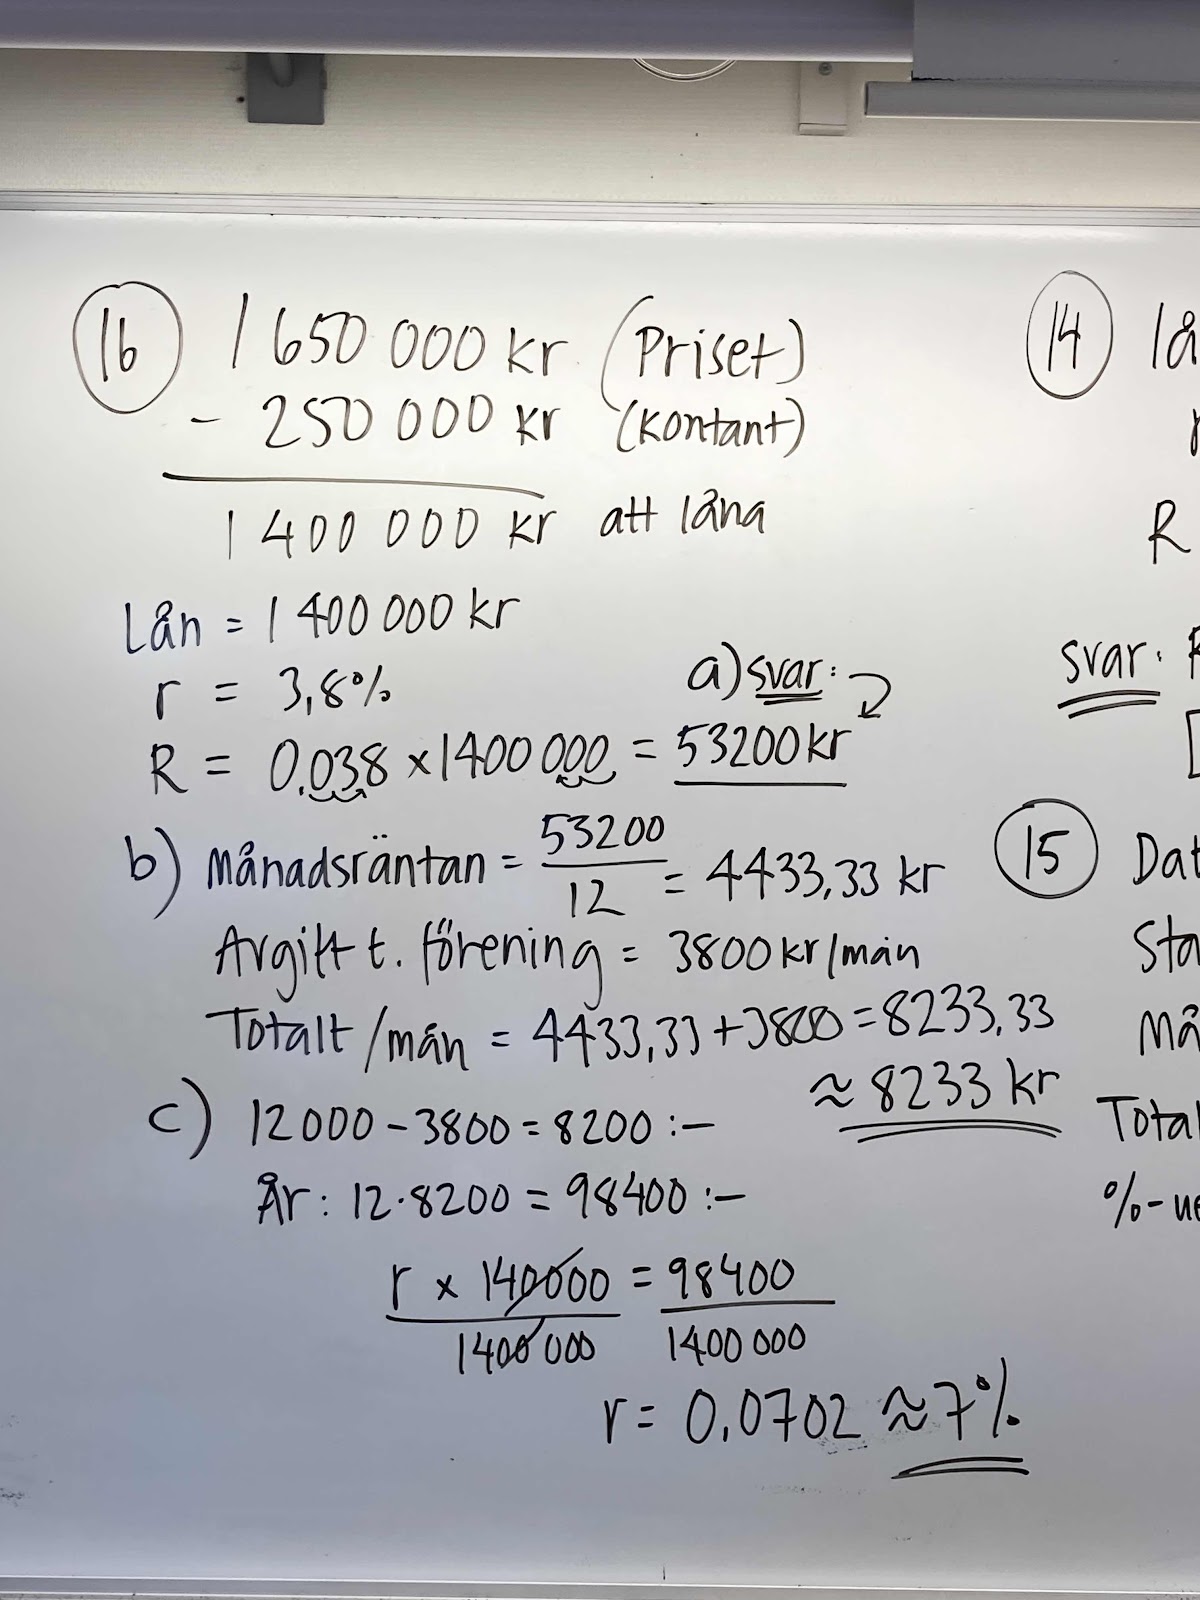 16 1 650 000 kr (Priset)
- 250 000 kr (kontant)
1 400 000 kr att låna
Lån = 1 400 000 kr
r = 3,8%
a) svar:
R = 0.038 × 1400 000 = 53200 kr
b) Månadsräntan = 53200/12 = 4433,33 kr
Avgift t. förening = 3800 kr/mån
Totalt /mån = 4433,33 + 3800 = 8233,33
≈ 8233 kr
c) 12000 - 3800 = 8200 :-
År : 12 · 8200 = 98400 :-
r × 140000 = 98400
1400 000 1400 000
r = 0,0702 ≈ 7%
14 lå
R
svar:
15 Dat
Sta
Må
Total
%-